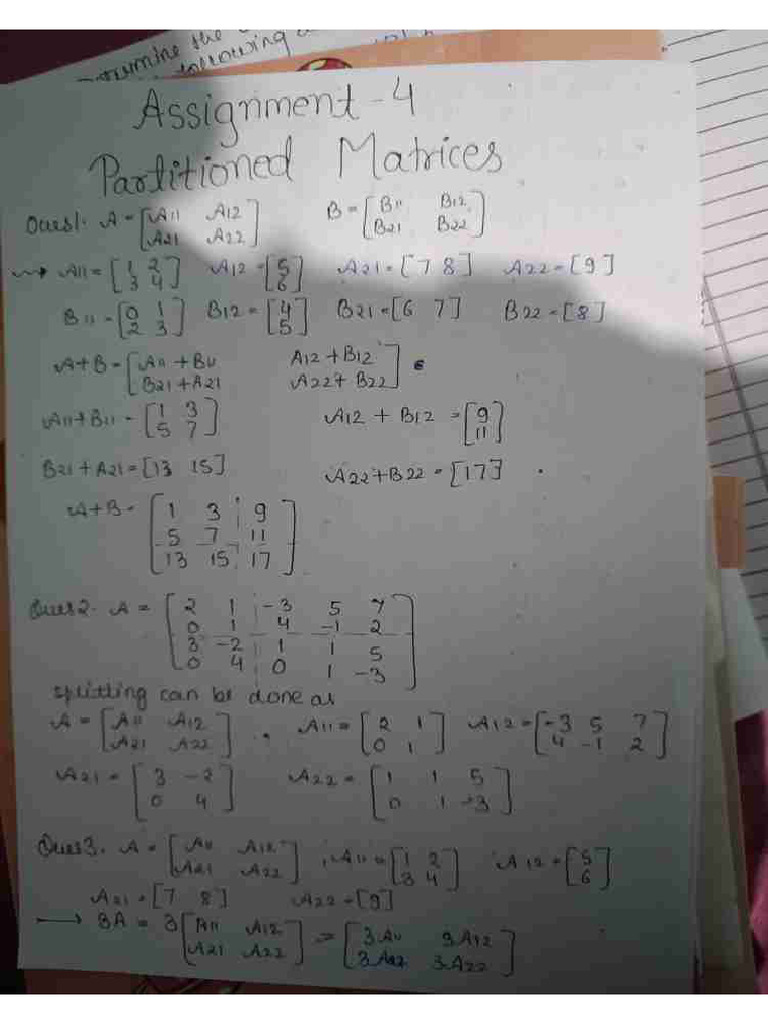 determine the
following
Assignment-4
Partitioned Matrices
Ques1. A = [A11 A12
A21 A22] B = [B11 B12
B21 B22]
A11 = [1 2
3 4] A12 = [5
6] A21 = [7 8] A22 = [9]
B11 = [0 1
2 3] B12 = [4
5] B21 = [6 7] B22 = [8]
A+B = [A11 + B11 A12 + B12
B21 + A21 A22 + B22]
A11 + B11 = [1 3
5 7] A12 + B12 = [9
11]
B21 + A21 = [13 15] A22 + B22 = [17]
A+B = [1 3 9
5 7 11
13 15 17]
Ques2. A = [2 1 -3 5 7
0 1 4 -1 2
3 -2 1 1 5
0 4 0 1 -3]
splitting can be done as
A = [A11 A12
A21 A22] , A11 = [2 1
0 1] A12 = [-3 5 7
4 -1 2]
A21 = [3 -2
0 4] A22 = [1 1 5
0 1 -3]
Ques3. A = [A11 A12
A21 A22] , A11 = [1 2
3 4] A12 = [5
6]
A21 = [7 8] A22 = [9]
→ 3A = 3 [A11 A12
A21 A22] = [3A11 3A12
3A22 3A22]